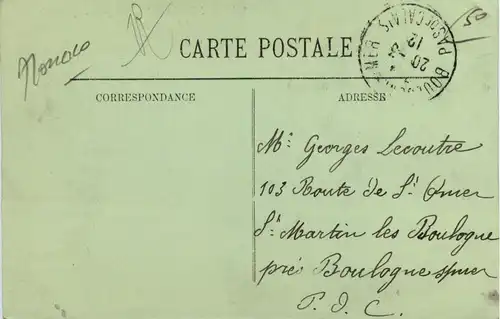 Monaco
50
CARTE POSTALE
BOULOGNE S MER
PAS DE CALAIS
12
20
CORRESPONDANCE
ADRESSE
Mr Georges Lecoutre
103 Route de St Omer
St Martin les Boulogne
près Boulogne s/mer
P. D. C.